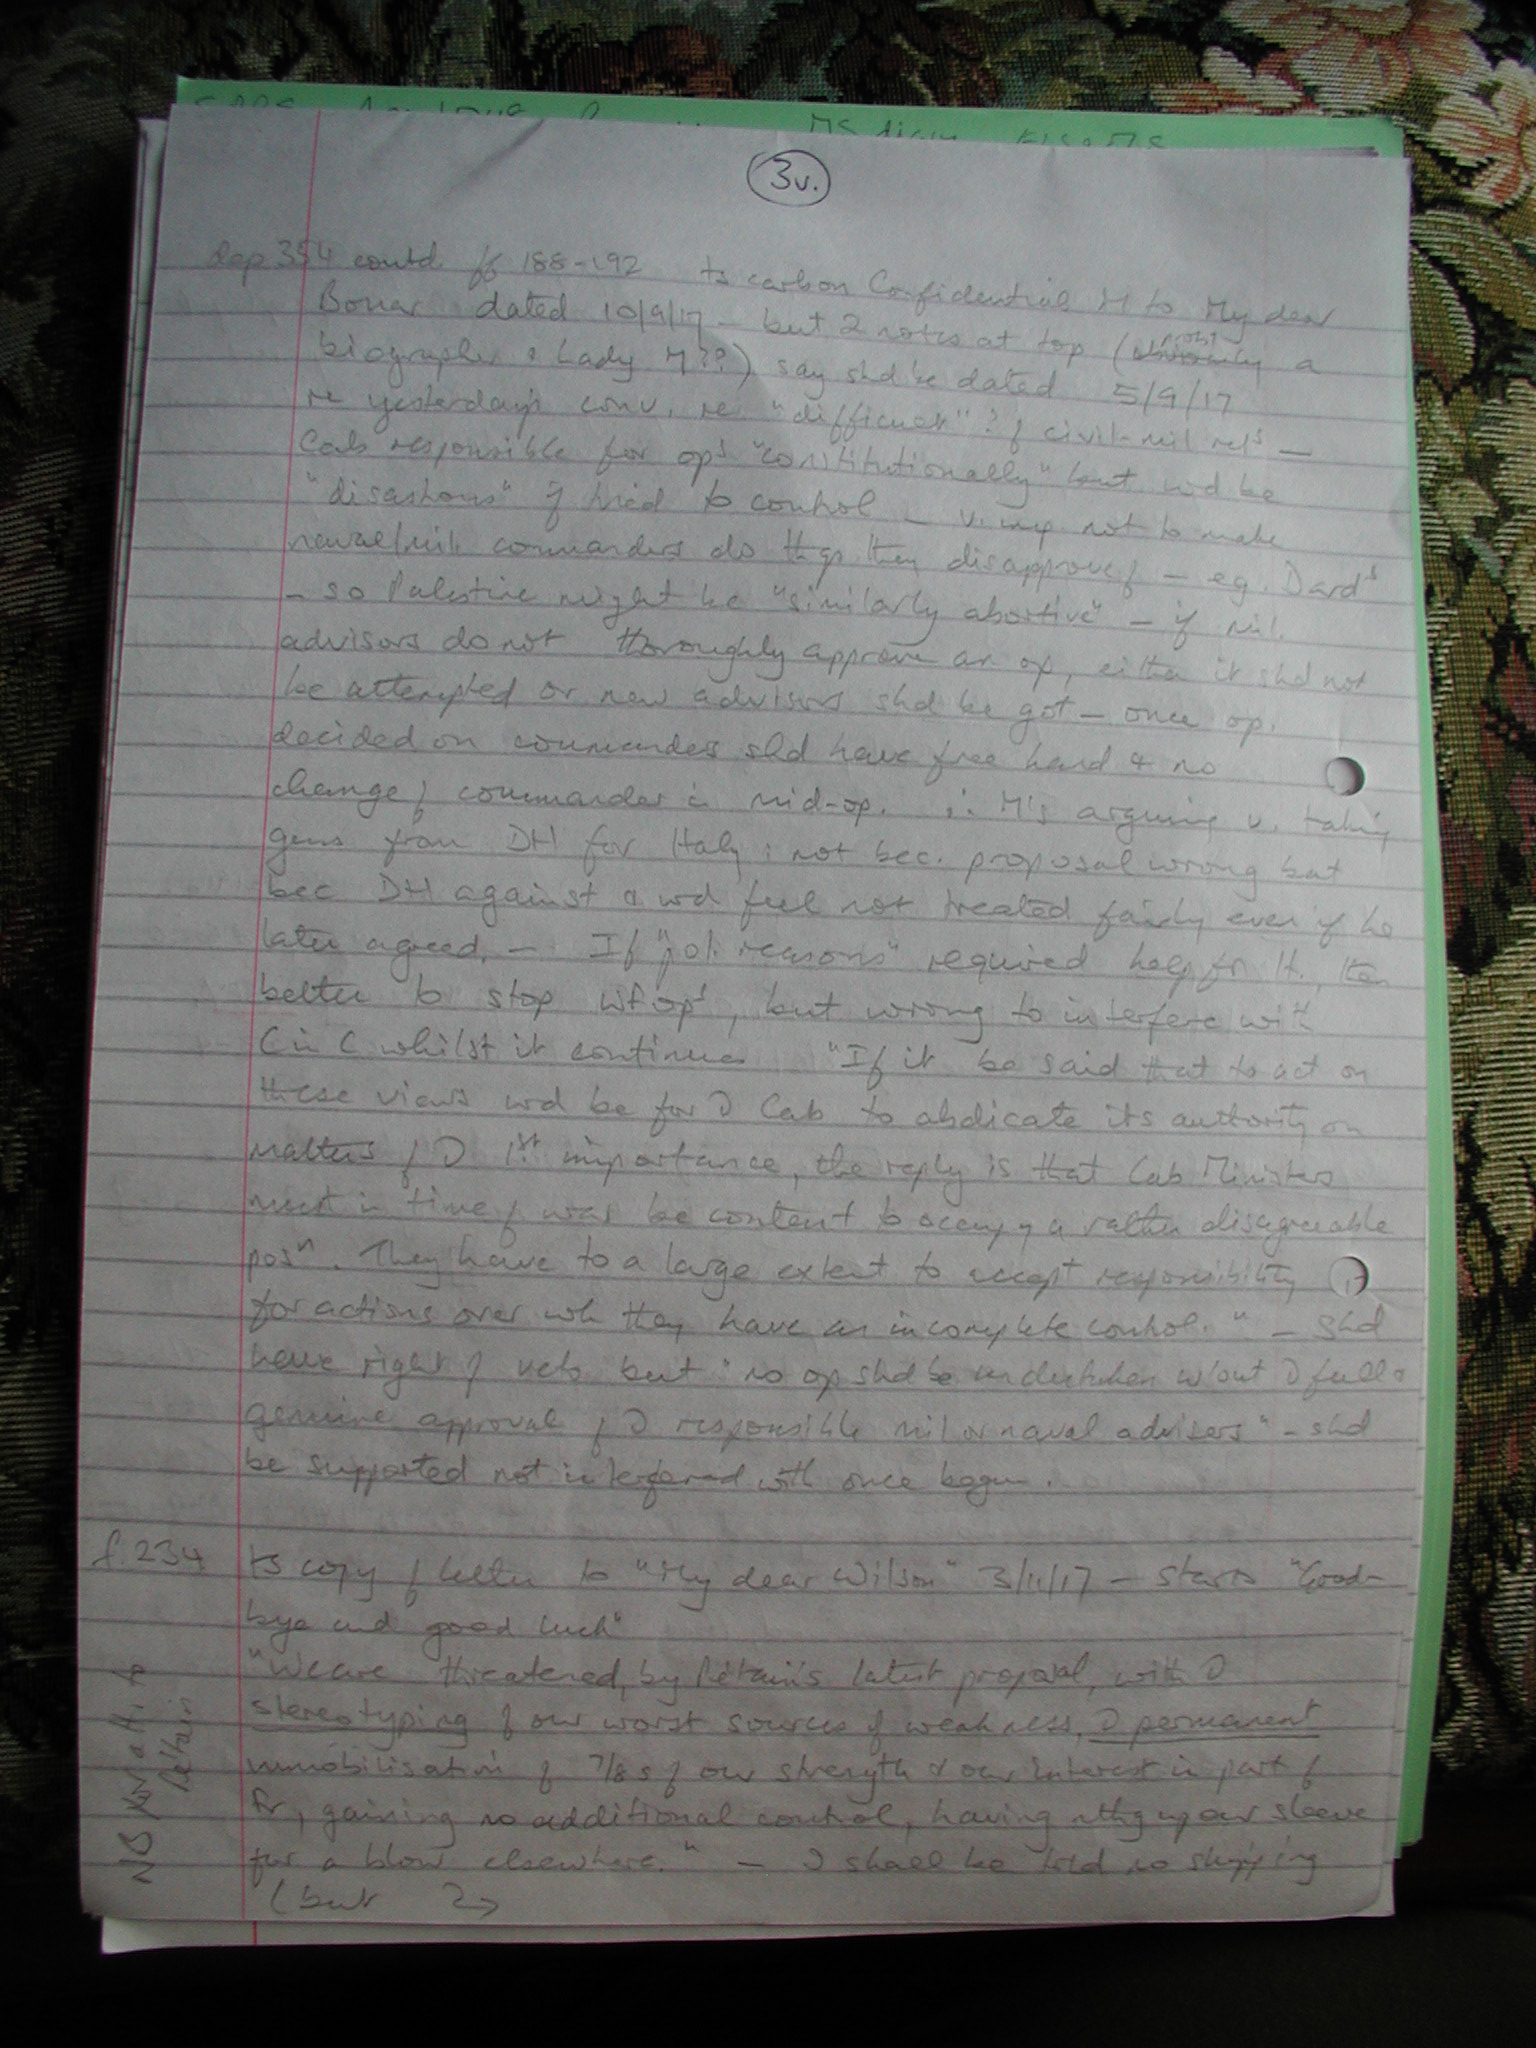 MS diary
3v.
dep 354 contd. ff 188-192 ts carbon Confidential M to My dear
Bonar dated 10/9/17 - but 2 notes at top (prob a
biographer & Lady M??) say shd be dated 5/9/17
re yesterday's conv. re "difficult" ? of civil-mil relns -
Cab responsible for ops "constitutionally" but wd be
"disastrous" if tried to control - v. imp not to make
naval/mil. commanders do thgs they disapprove of - eg. Dards
- so Palestine might be "similarly abortive" - if mil.
advisors do not thoroughly approve an op, either it shd not
be attempted or new advisors shd be got - once op.
decided on commanders shd have free hand & no
change of commander in mid-op. ∴ M's arguing v. taking
guns from DH for Italy: not bec. proposal wrong but
bec DH against & wd feel not treated fairly even if he
later agreed. - If "pol. reasons" required help for It. then
better to stop Wf ops, but wrong to interfere with
C in C whilst it continues "If it be said that to act on
these views wd be for Cab to abdicate its authority on
matters of 1st importance, the reply is that Cab Ministers
must in time of war be content to occupy a rather disagreeable
posn. They have to a large extent to accept responsibility
for actions over wh they have an incomplete control." - Shd
have right of veto but "no op shd be undertaken w'out full &
genuine approval of responsible mil or naval advisers" - shd
be supported not interfered with once begun.
f.234 ts copy of letter to "My dear Wilson" 3/11/17 - starts "Good-
bye and good luck"
"We are threatened, by Pétain's latest proposal, with
stereotyping of our worst sources of weakness, permanent
immobilisation of 7/8s of our strength & our interest in part of
Fr, gaining no additional control, having nthg up our sleeve
for a blow elsewhere." - I shall be told no shipping
(but
NB
Pétain